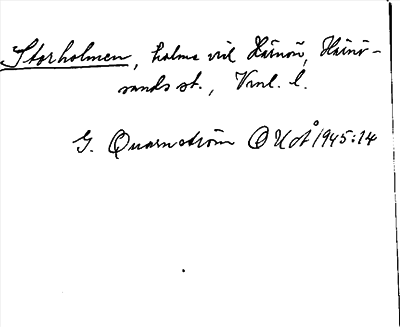 Storholmen, holme vid Härnön, Härnö-
sands st., Vnl. l.
G. Quarnström OUoÅ 1945:14